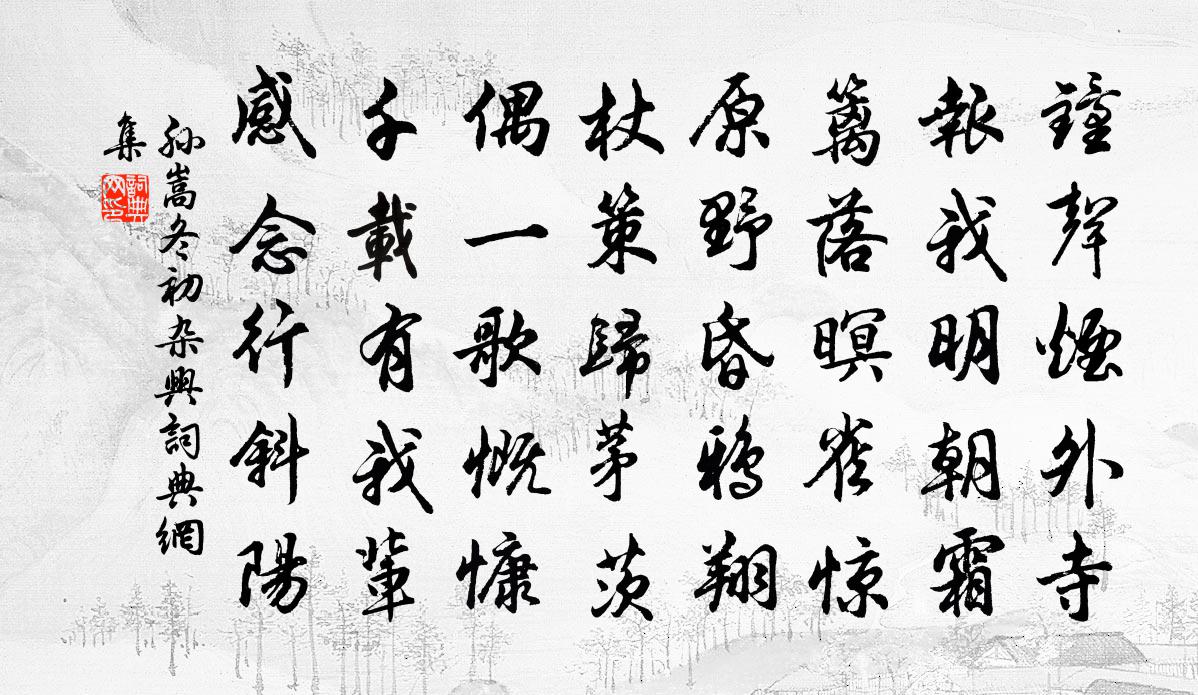 鐘聲煙外寺
報我明朝霜
籬落暝雀惊
原野昏鴉翔
杖策歸茅茨
偶一歌慨慷
千載有我輩
感念行斜陽
孙嵩冬初杂興詞典網
集
詞典
网印